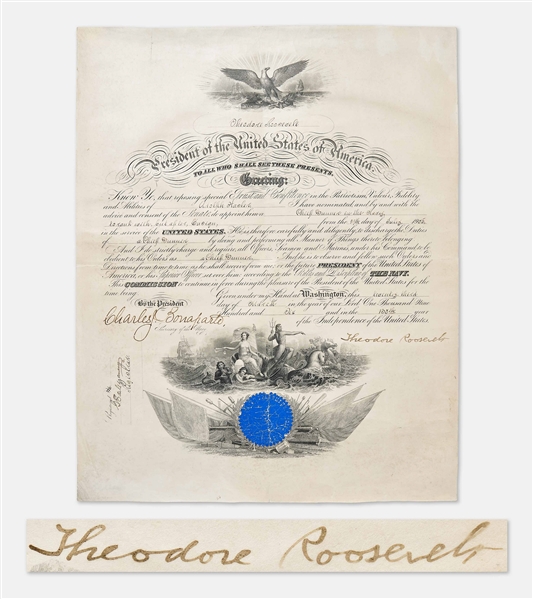 Theodore Roosevelt
President of the United States of America.
TO ALL WHO SHALL SEE THESE PRESENTS,
Greeting:
Know Ye, that reposing special Trust and Confidence in the Patriotism, Valour, Fidelity
and Abilities of I have nominated, and by and with the
advice and consent of the Senate do appoint him Chief Gunner in the Navy
to rank with, but after Ensign, from the day of 1906
in the service of the UNITED STATES. He is therefore carefully and diligently to discharge the duties
of a Chief Gunner by doing and performing all Manner of Things thereto belonging.
And I do strictly charge and require all Officers, Seamen and Marines, under his Command to be
obedient to his Orders as a Chief Gunner And he is to observe and follow such Orders and
Directions from time to time as he shall receive from me, or the future PRESIDENT of the United States of
America, or his Superior Officer set over him, according to the Rules and Discipline of THE NAVY.
This COMMISSION to continue in force during the pleasure of the President of the United States for the
time being.
Given under my Hand at Washington, this twenty third
day of in the year of our Lord One Thousand Nine
Hundred and Six and in the year
of the Independence of the United States
By the President
Charles J. Bonaparte
Secretary of the Navy.
Theodore Roosevelt
Theodore Roosevelt